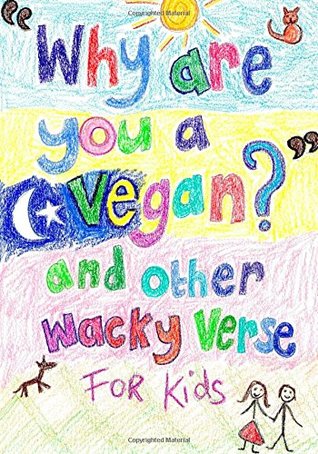 Copyrighted Material
"Why are
you a
vegan?"
and other
wacky verse
FOR Kids
Copyrighted Material